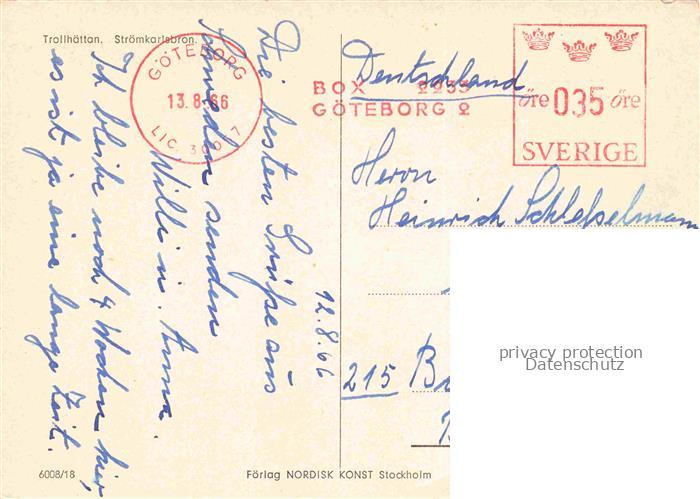 Trollhättan. Strömkarlsbron.
Die besten Grüße aus
Schweden senden
Willi u. Anna.
Ich bleibe noch 4 Wochen hier,
es ist ja eine lange Zeit.
12.8.66
GÖTEBORG
13.8.66
LIC. 300 7
BOX 2233
GÖTEBORG 2
öre 035 öre
SVERIGE
Deutschland
Herrn
Heinrich
215
privacy protection
Datenschutz
6008/18
Förlag NORDISK KONST Stockholm